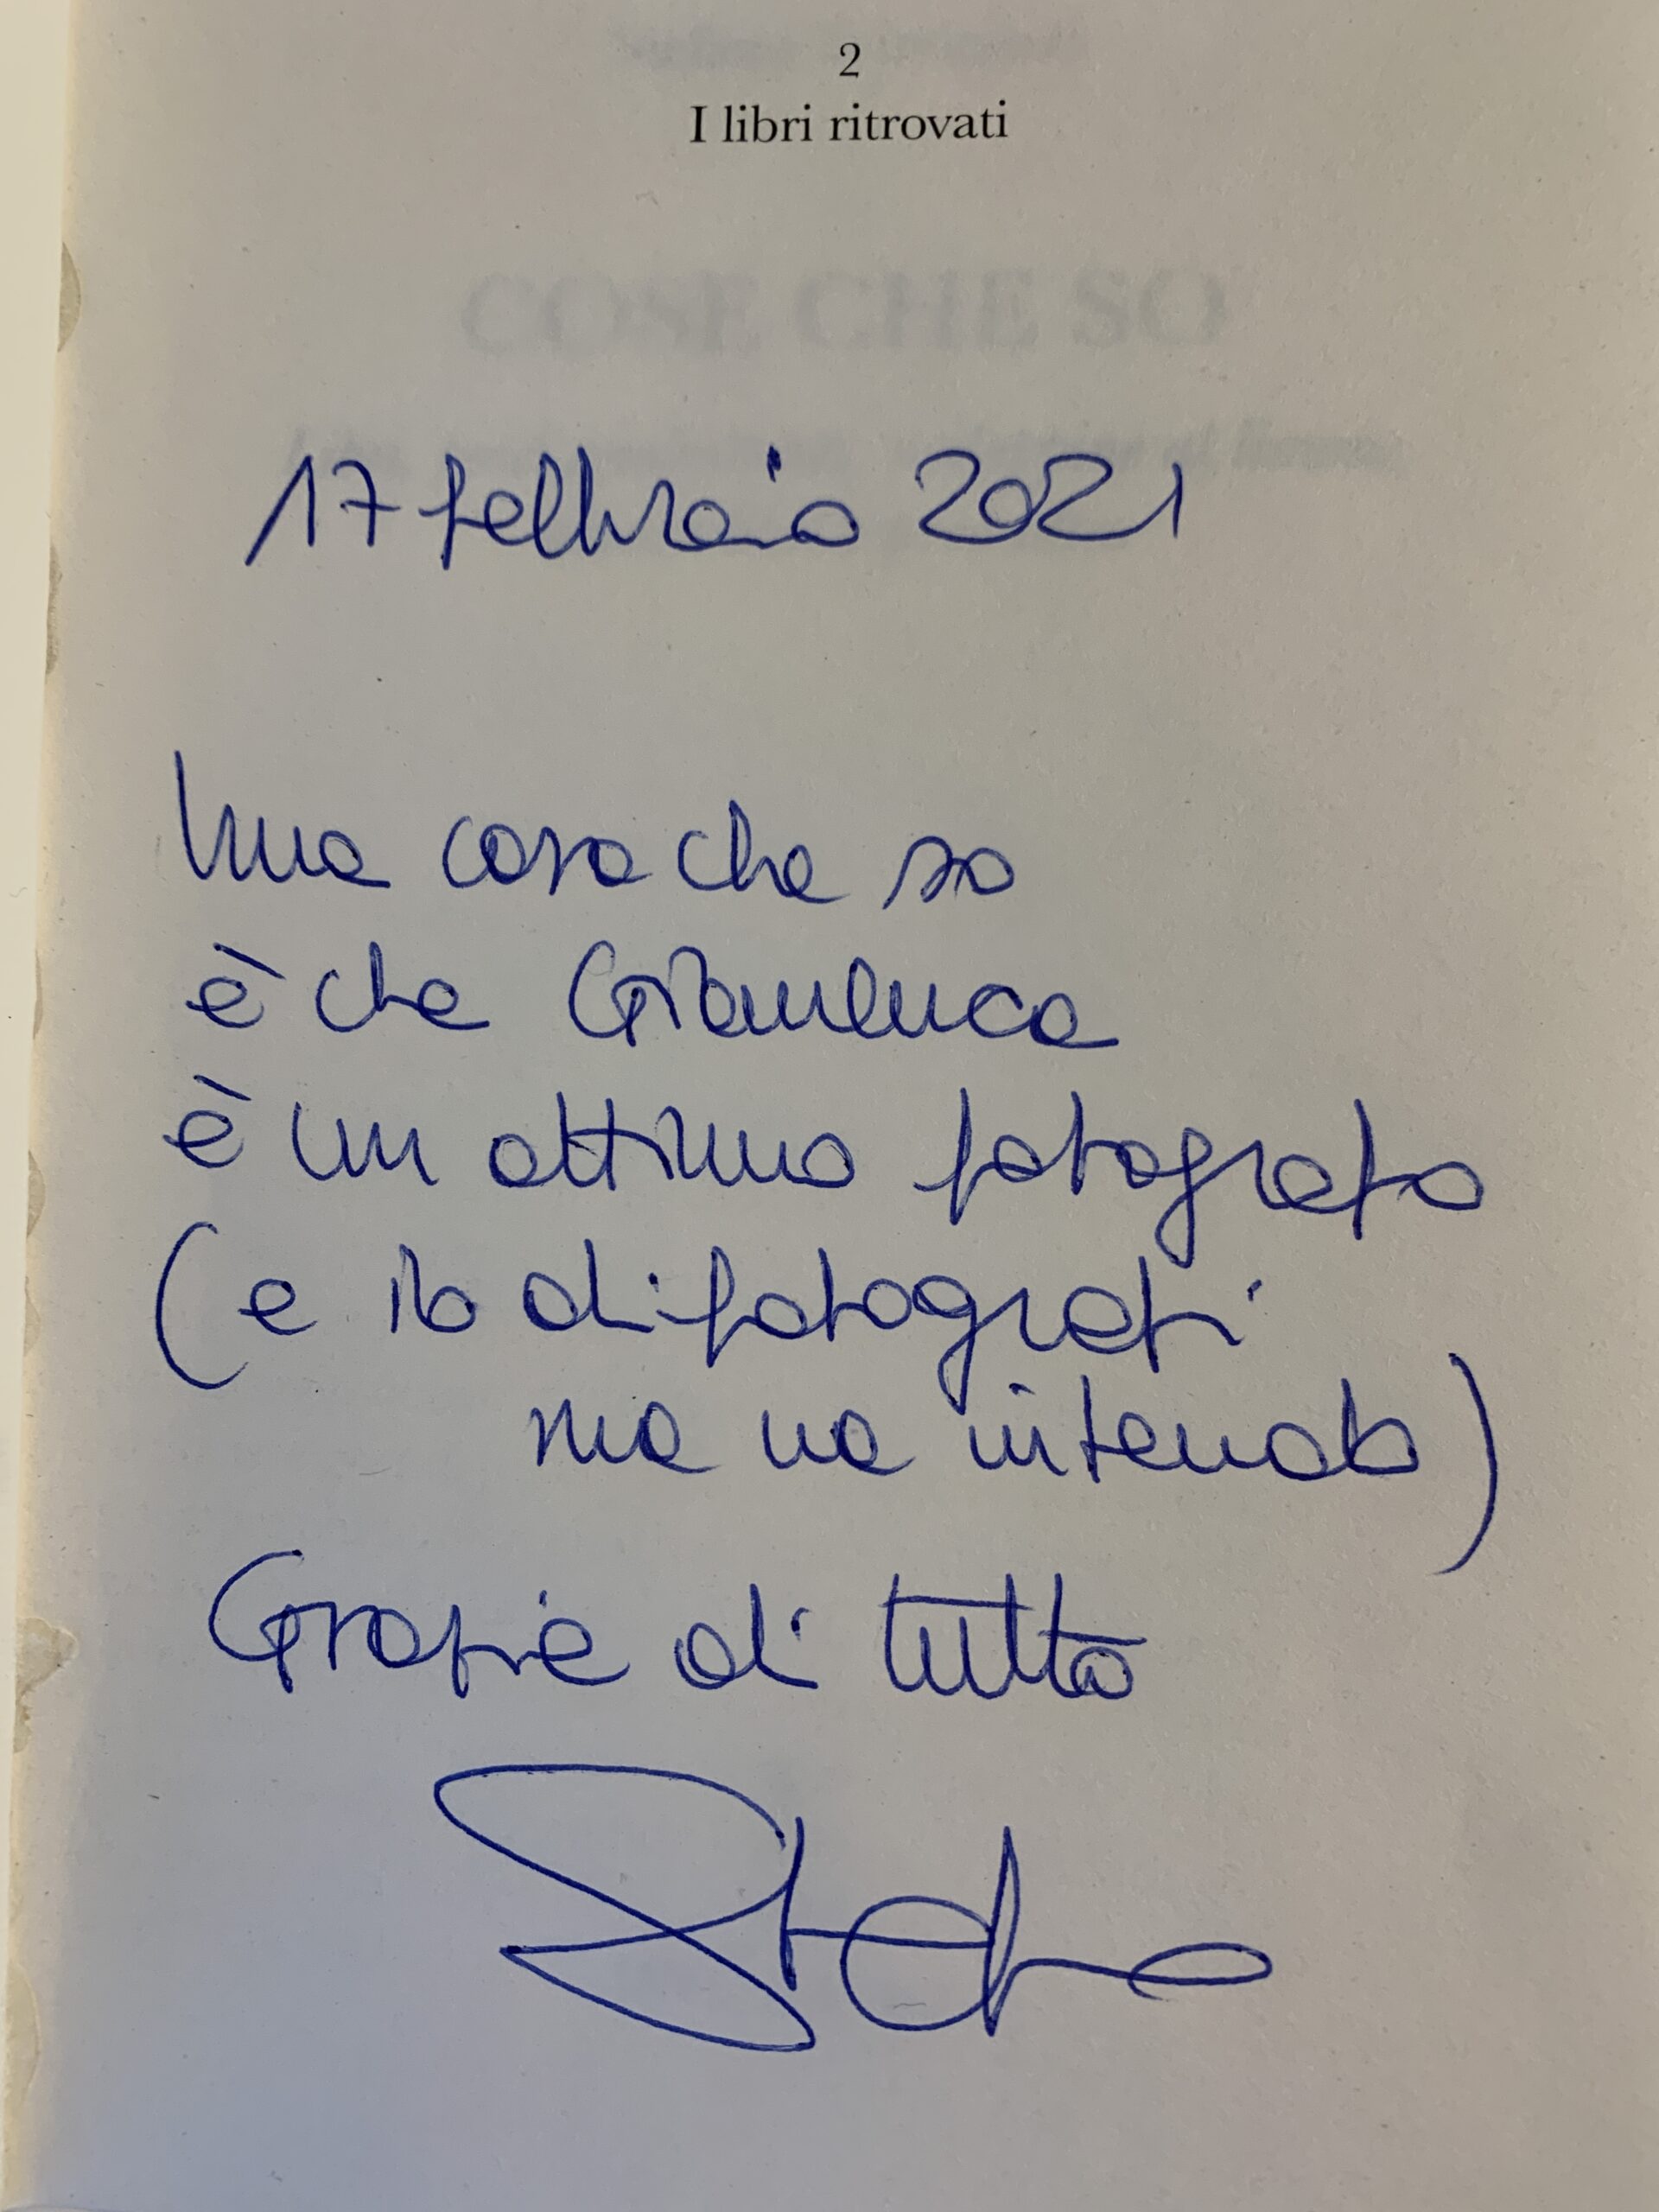 2
I libri ritrovati
COSE CHE SO
17 febbraio 2021
Una cosa che so
è che Gianluca
è un ottimo fotografo
(e io di fotografi
me ne intendo)
Grazie di tutto